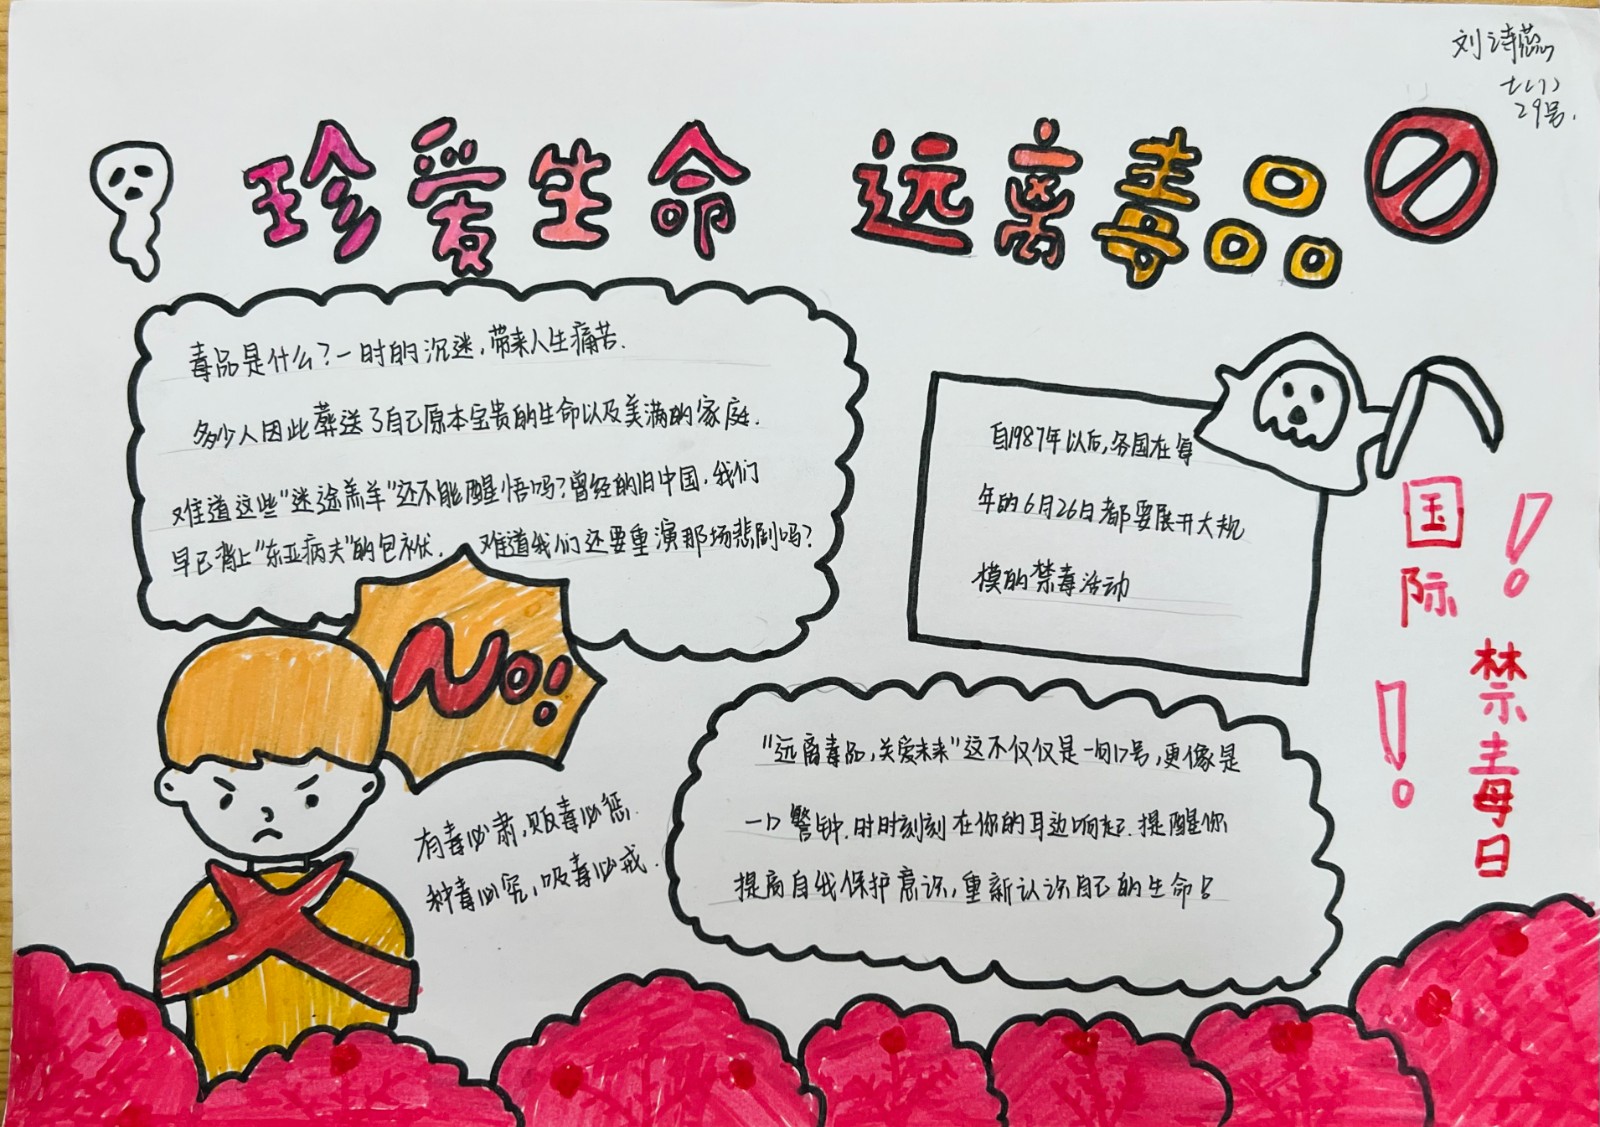 刘诗蕊
七(7)
29号.
珍爱生命 远离毒品
毒品是什么?一时的沉迷,带来人生痛苦.
多少人因此葬送了自己原本宝贵的生命以及美满的家庭.
难道这些“迷途羔羊”还不能醒悟吗?曾经的旧中国,我们
早已背上“东亚病夫”的包袱. 难道我们还要重演那场悲剧吗?
自1987年以后,各国在每
年的6月26日都要展开大规
模的禁毒活动
国际
禁毒日
!
!
No!
有毒必肃,贩毒必惩.
种毒必究,吸毒必戒.
“远离毒品,关爱未来”这不仅仅是一句口号,更像是
一口警钟.时时刻刻在你的耳边响起.提醒你
提高自我保护意识,重新认识自己的生命!